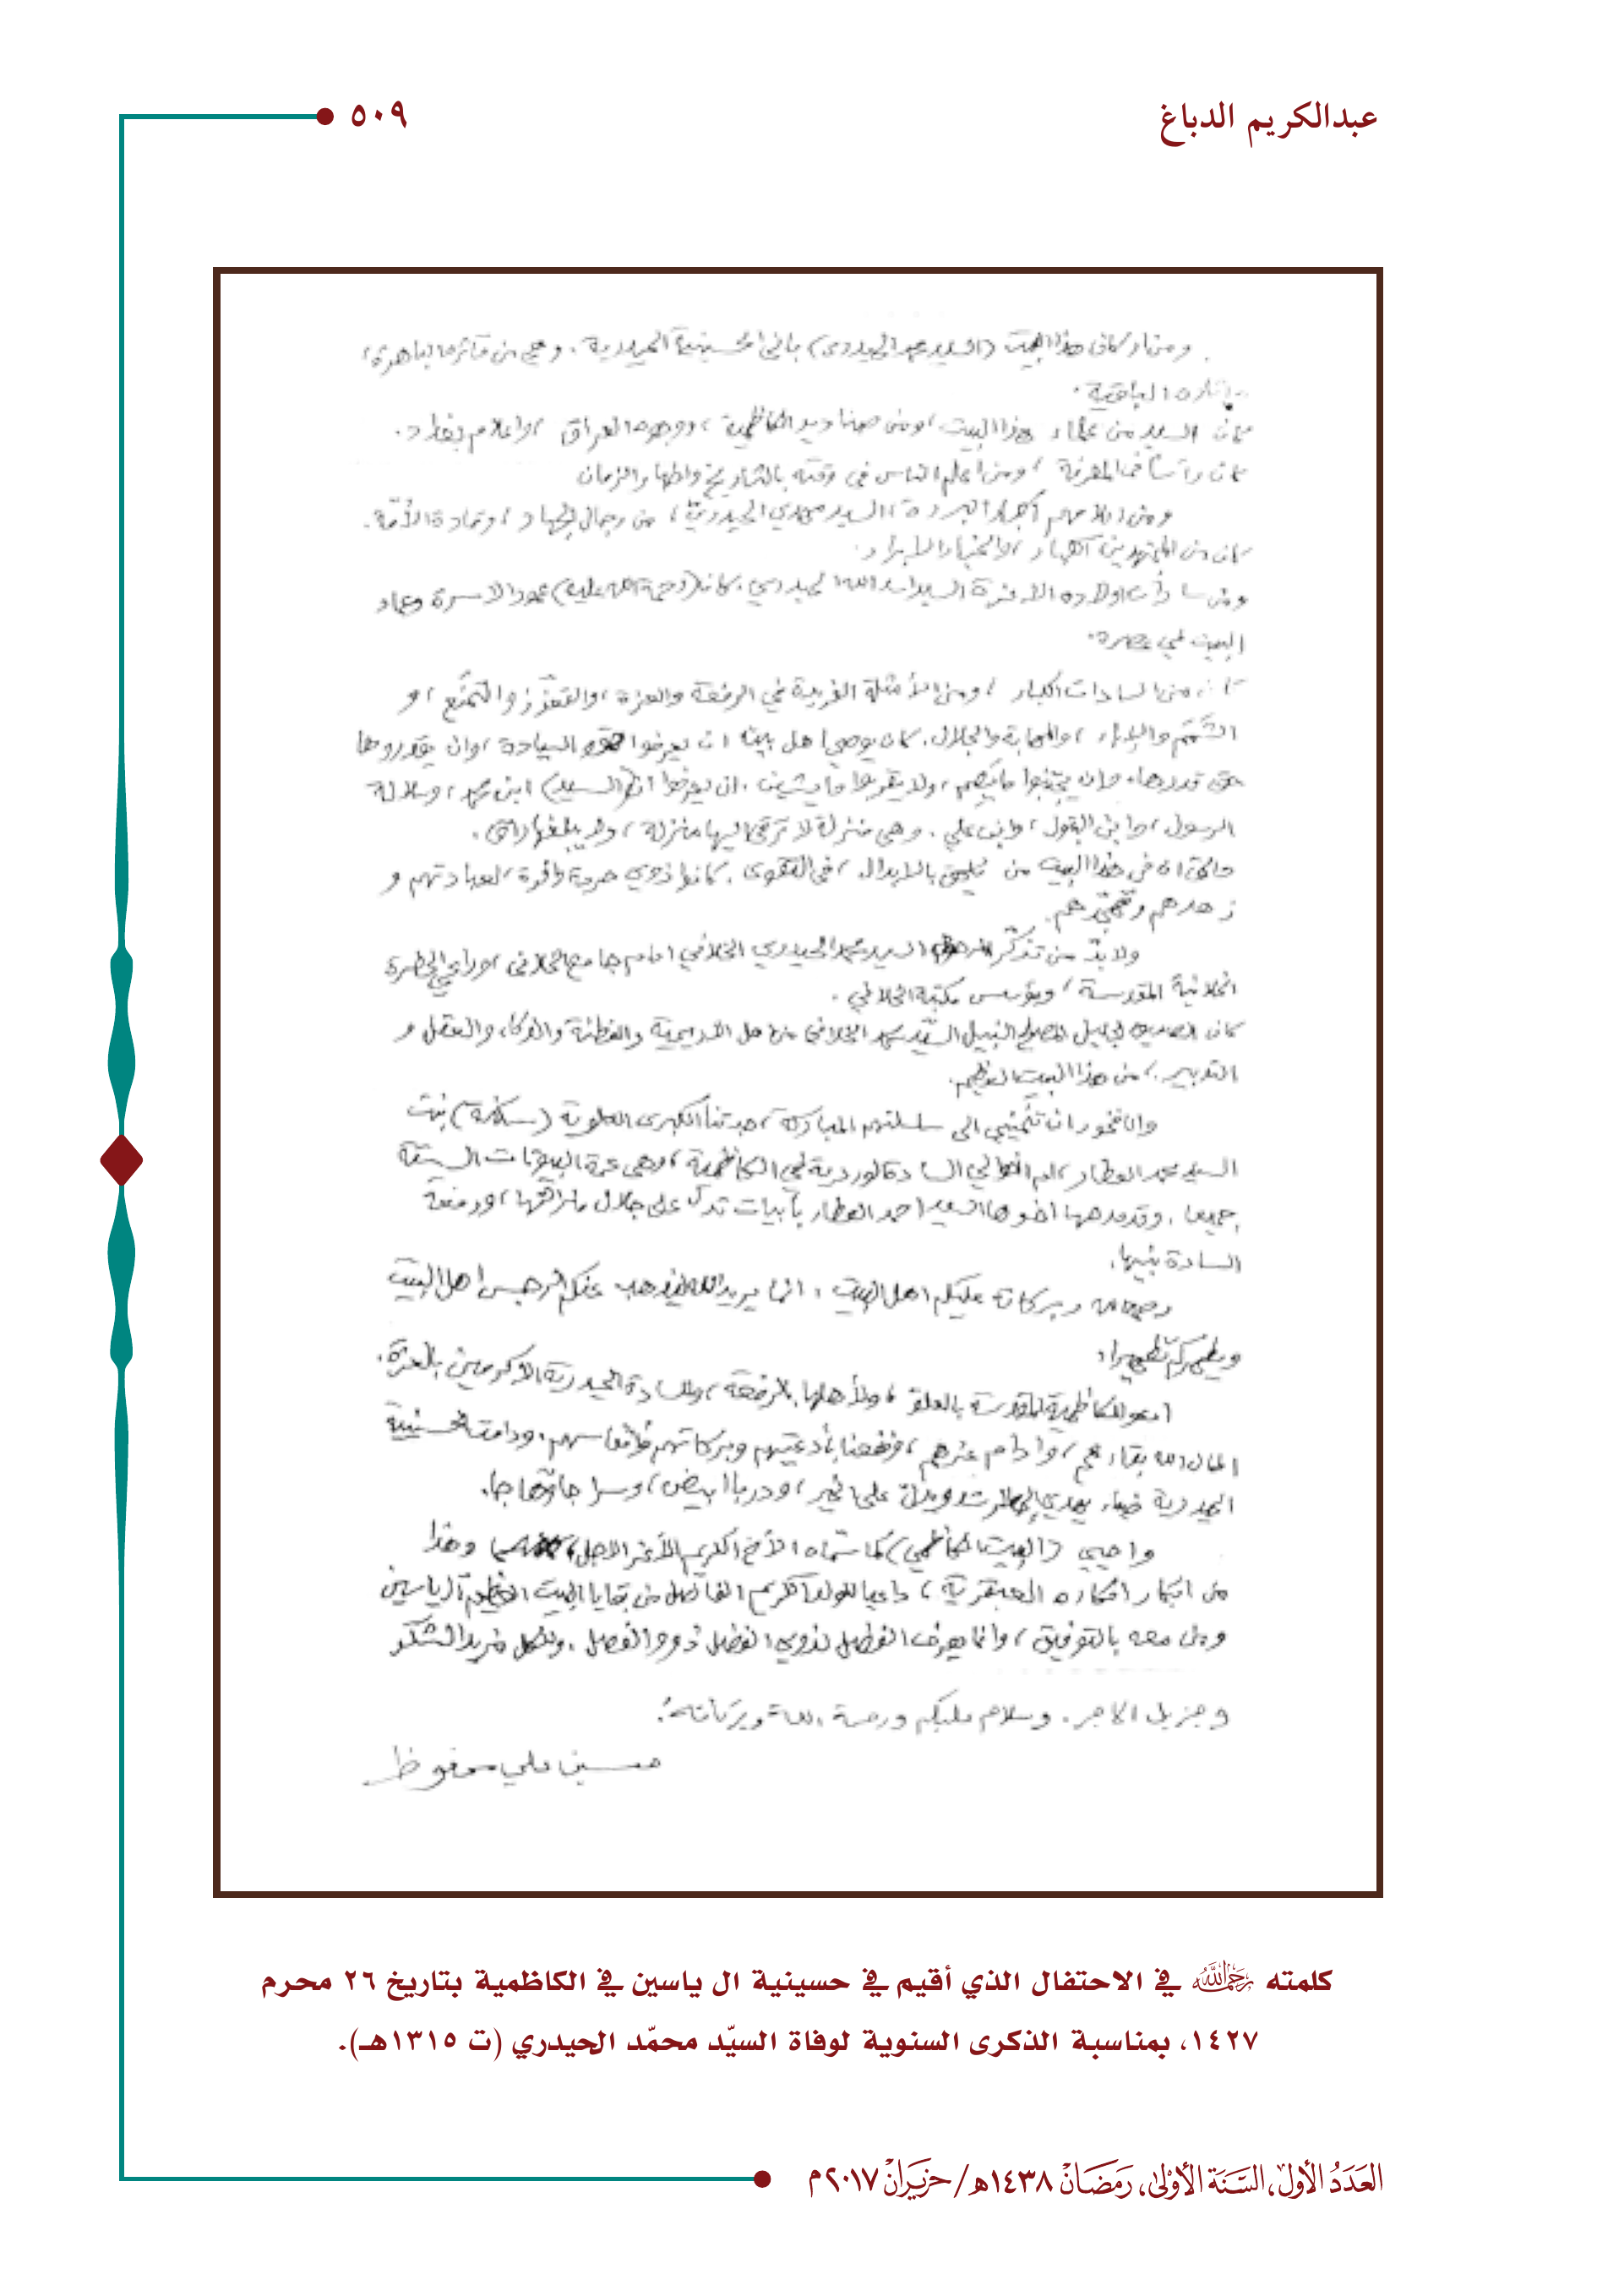 عبدالكريم الدباغ
٥٠٩
ومن اركان هذا البيت (السيد محمد الحيدري) باني الحسينية الحيدرية. وهي من مآثره الباهرة،
الباقية.
كان السيد من علماء هذا البيت، ومن صناديد الكاظمية، ووجوه العراق، واعلام بغداد.
كان رأساً في المعرفة، ومن اعلم الناس في وقته بالتاريخ والزمان
ومن السيد مهدي الحيدري، من رجال الجهاد، وقادة الأمة.
كان من المجتهدين الكبار، والاخيار الابرار.
ومن سادات اولاده السيد اسد الله الحيدري. كان (رحمة الله عليه) عمود الاسرة وعماد
البيت في عصره.
كان من السادات الكبار، ومن الأمثلة الفريدة في الرفعة والعزة، والتعزز والتمنع، و
الشمم والاباء، والمهابة والجلال. كان يوصي اهل بيته ان يعرفوا السيادة، وان يقدروها
حق قدرها، وان يجتنبوا ولا يقربوا ما يشين، ان يعرفوا ان (السيد) ابن محمد، وسلالة
الرسول، وابن البتول، وابن علي. وهي منزلة لا ترقى اليها منزلة، ولا يبلغها راقي.
والحق ان في هذا البيت من يلحق بالابدال، في التقوى. كانوا ذوي حرمة وافرة لعبادتهم و
زهدهم وتهجدهم.
ولا بد من تذكر السيد محمد الحيدري الخلاني امام جامع الخلاني، وراعي الحظيرة
الخلانية المقدسة، ومؤسس مكتبة الخلاني.
كان الجليل المصلح النبيل السيد محمد الخلاني من اهل الأريحية والفطنة والذكاء والعقل و
التدبير، من هذا البيت العظيم.
وانا فخور ان تنميني الى سلسلتهم المباركة، جدتنا الكبرى العلوية (سكينة) بنت
السيد محمد العطار، ام الموالي السادة الوردية في الكاظمية، وهي عمة البيوتات الستة
جميعا. وقد مدحها اخوها السيد احمد العطار بأبيات تدل على جلال منزلتها، ورفعة
السادة بنيها.
رحمة الله وبركاته عليكم اهل البيت، انما يريد الله ليذهب عنكم الرجس اهل البيت
ويطهركم تطهيرا.
ادعو للكاظمية المقدسة بالعلو، ولأهلها بالرفعة، وللسادة الحيدرية الاكرمين بالعزة.
اطال الله بقاءهم، وادام عزهم، ونفعنا بأدعيتهم وبركاتهم وانفاسهم. ودامت الحسينية
الحيدرية ضياء يهدي ويدل على الخير، ودربا ابيض، وسراجا وهاجا.
واحيي (البيت الكاظمي) كما سماه الأخ الكريم الأعز الاجل وهذا
من ابتكار افكاره العبقرية، داعيا للولد الكريم الفاضل من بقايا البيت العظيم آل ياسين
ومن معه بالتوفيق، وانما يعرف الفضل لذوي الفضل ذوو الفضل. ولكل مزيد الشكر
وجزيل الاجر. وسلام عليكم ورحمة الله وبركاته.
حسين علي محفوظ
كلمته رحمه الله في الاحتفال الذي أقيم في حسينية ال ياسين في الكاظمية بتاريخ ٢٦ محرم
١٤٢٧، بمناسبة الذكرى السنوية لوفاة السيّد محمّد الحيدري (ت ١٣١٥هـ).
العَدَدُ الأول، السَّنَة الأوْلى، رَمَضَانْ ١٤٣٨هـ/حزيرانْ ٢٠١٧م